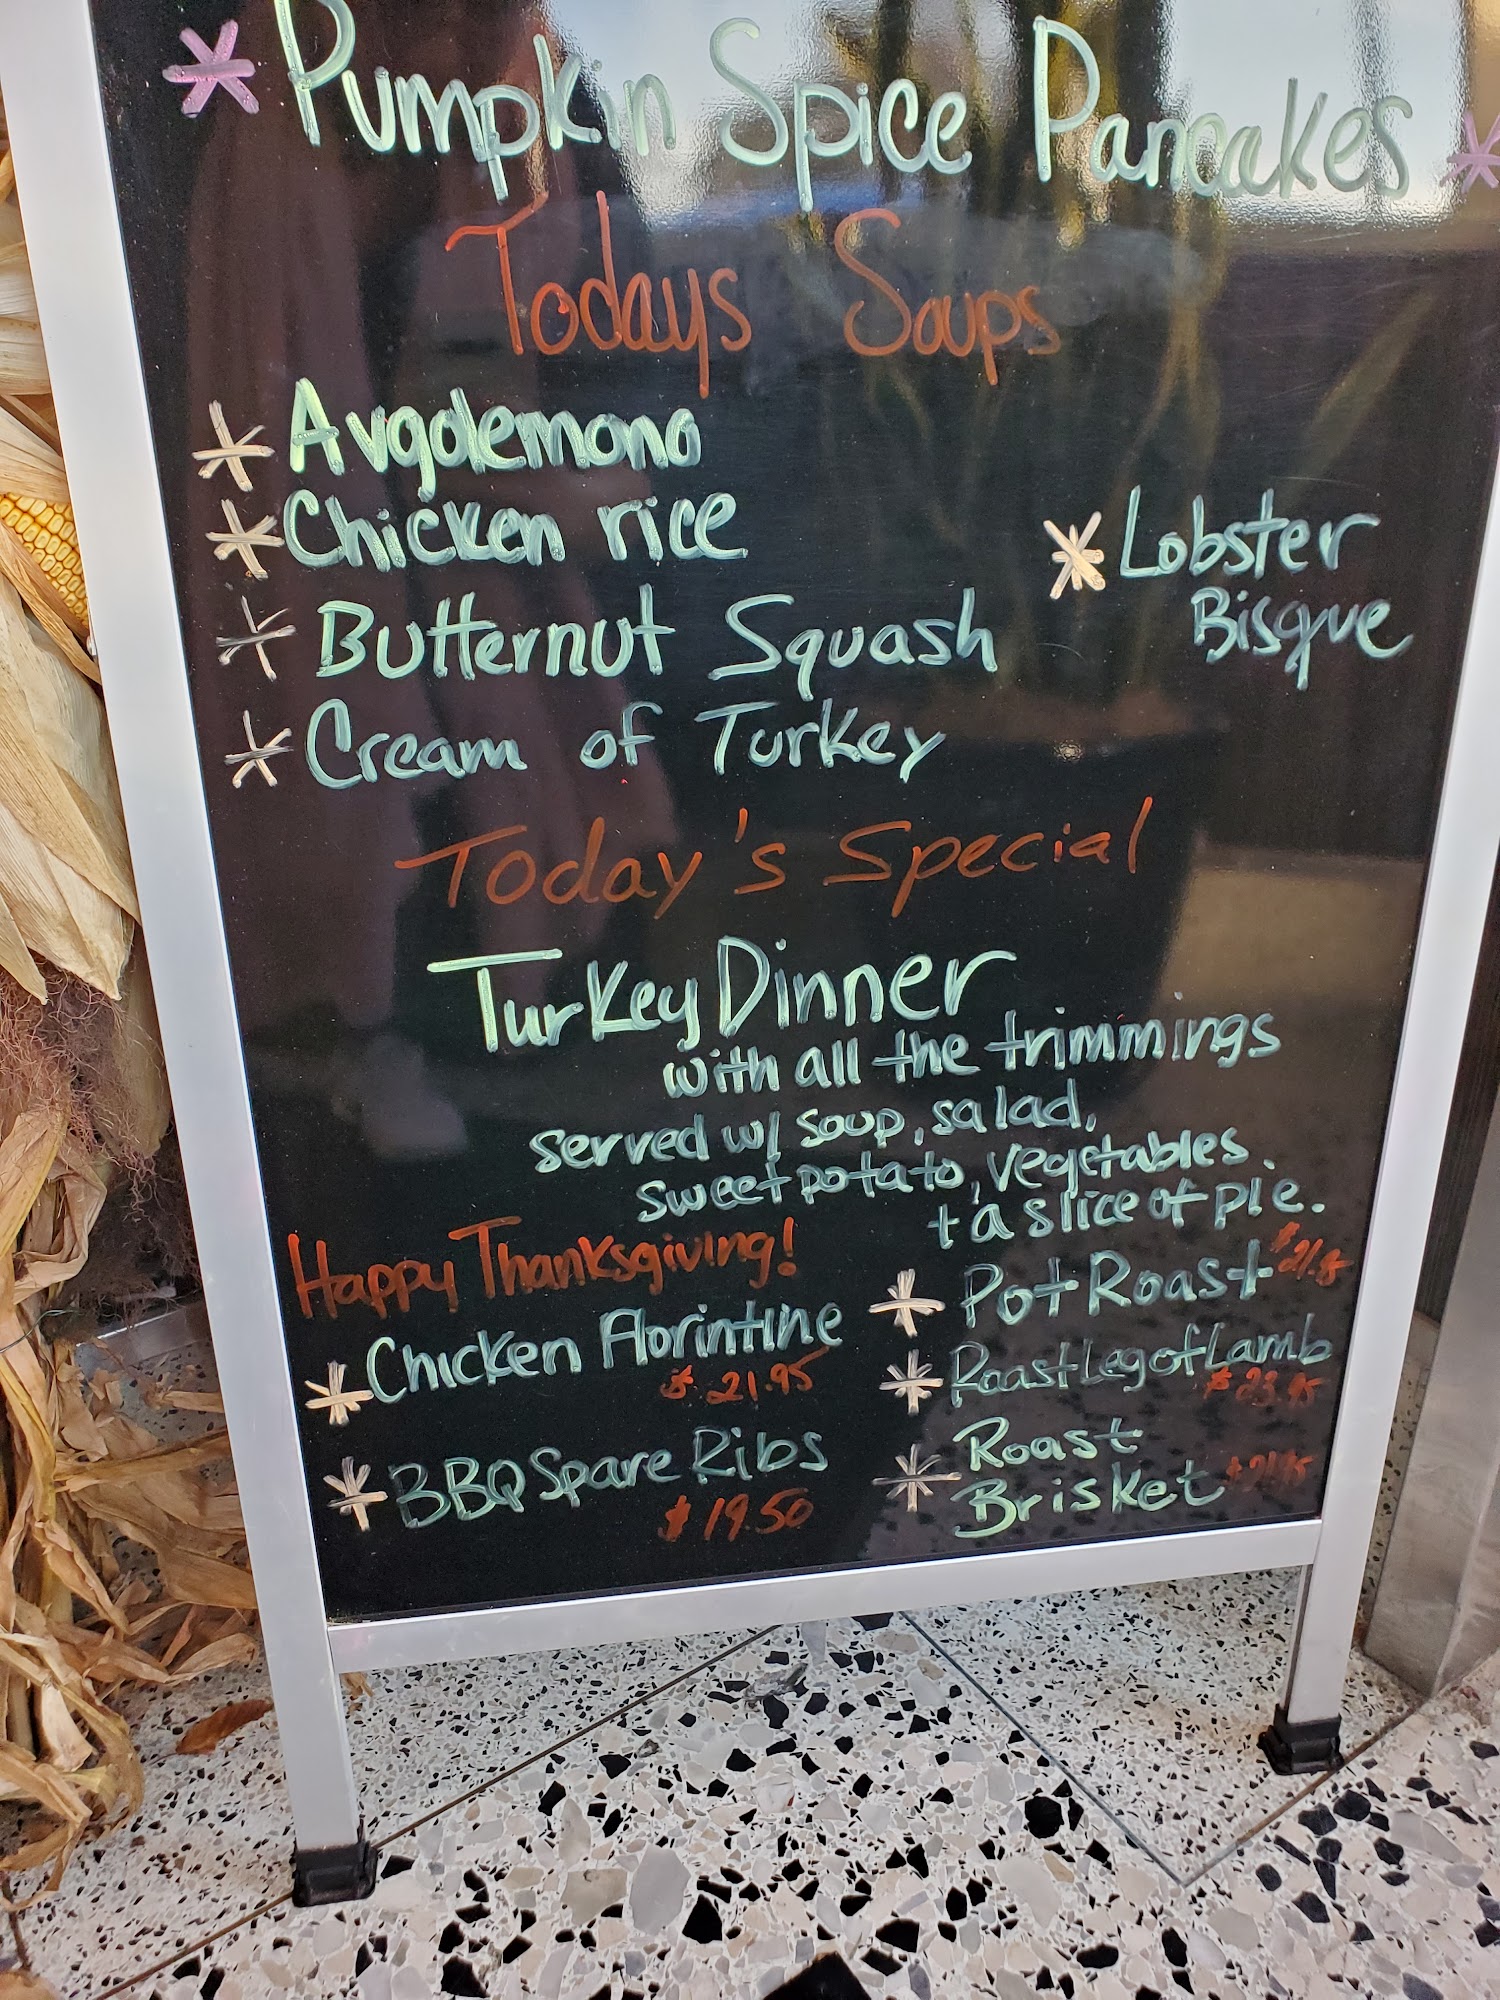 * Pumpkin Spice Pancakes *
Todays Soups
* Avgolemono
* Chicken rice
* Lobster
Bisque
* Butternut Squash
* Cream of Turkey
Today's Special
Turkey Dinner
with all the trimmings
served w/ soup, salad,
sweet potato, vegetables.
+ a slice of pie.
Happy Thanksgiving!
* Chicken Florintine
$21.95
* BBQ Spare Ribs
$19.50
* Pot Roast
* Roast Leg of Lamb
$23.95
* Roast
Brisket $21.95